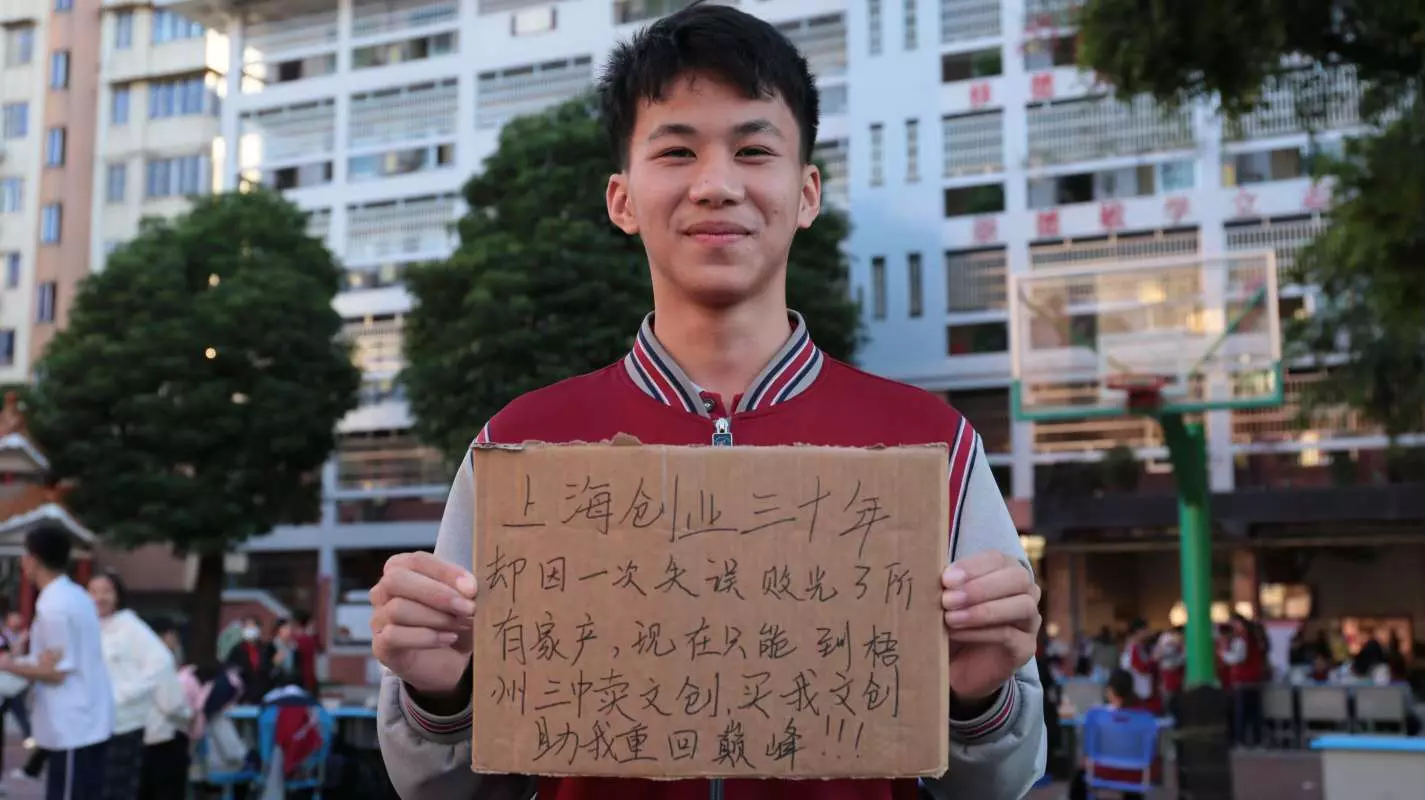 上海创业三十年
却因一次失误败光了所
有家产,现在只能到梧
州三中卖文创,买我文创
助我重回巅峰!!!